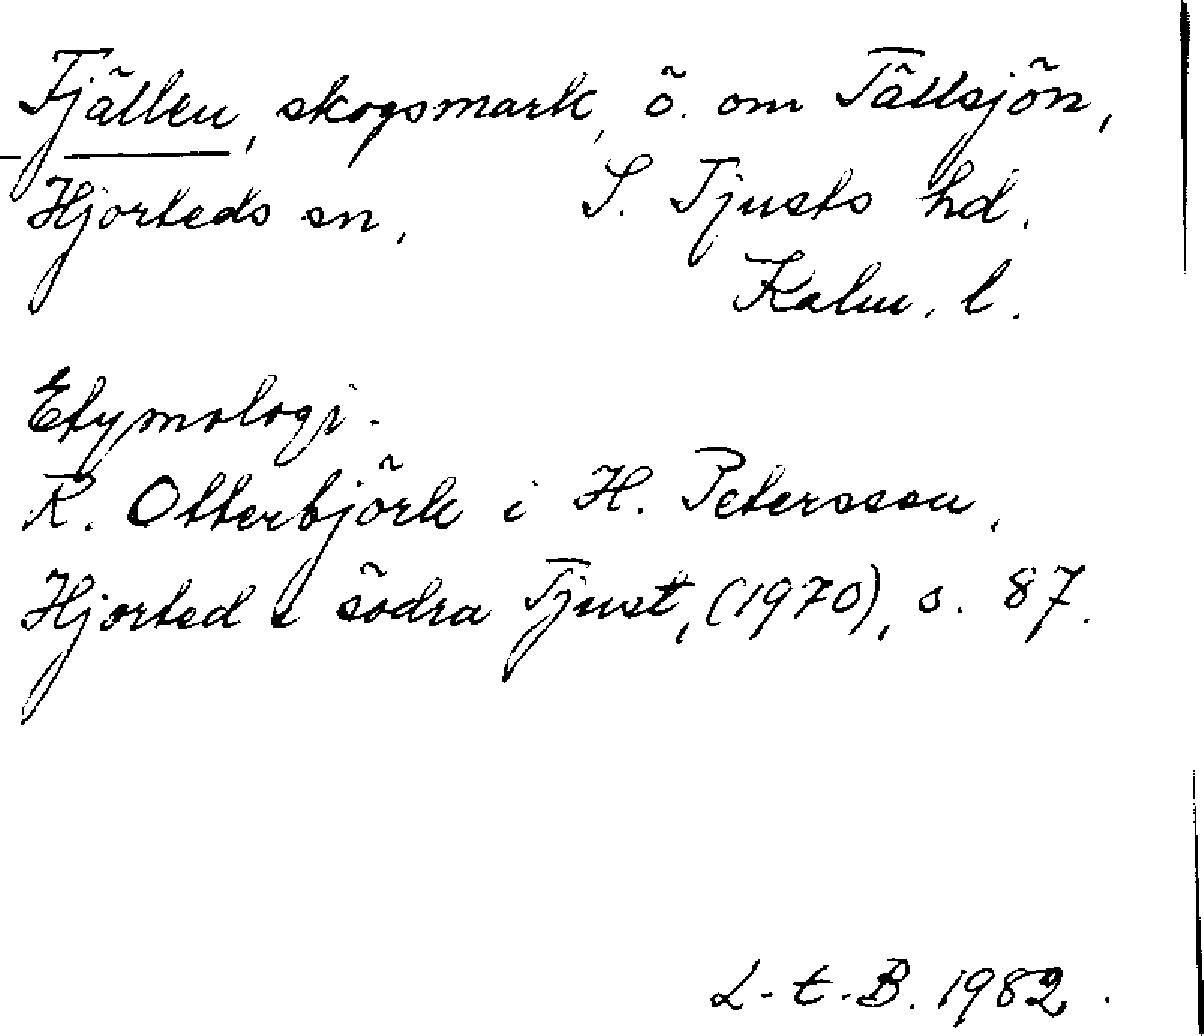 Fjällen, skogsmark, ö. om Tällsjön,
Hjorteds sn, S. Tjusts hd.
Kalm. l.
Etymologi.
R. Otterbjörk i H. Petersson,
Hjorted i södra Tjust, (1970), s. 87.
L-t-B. 1982.